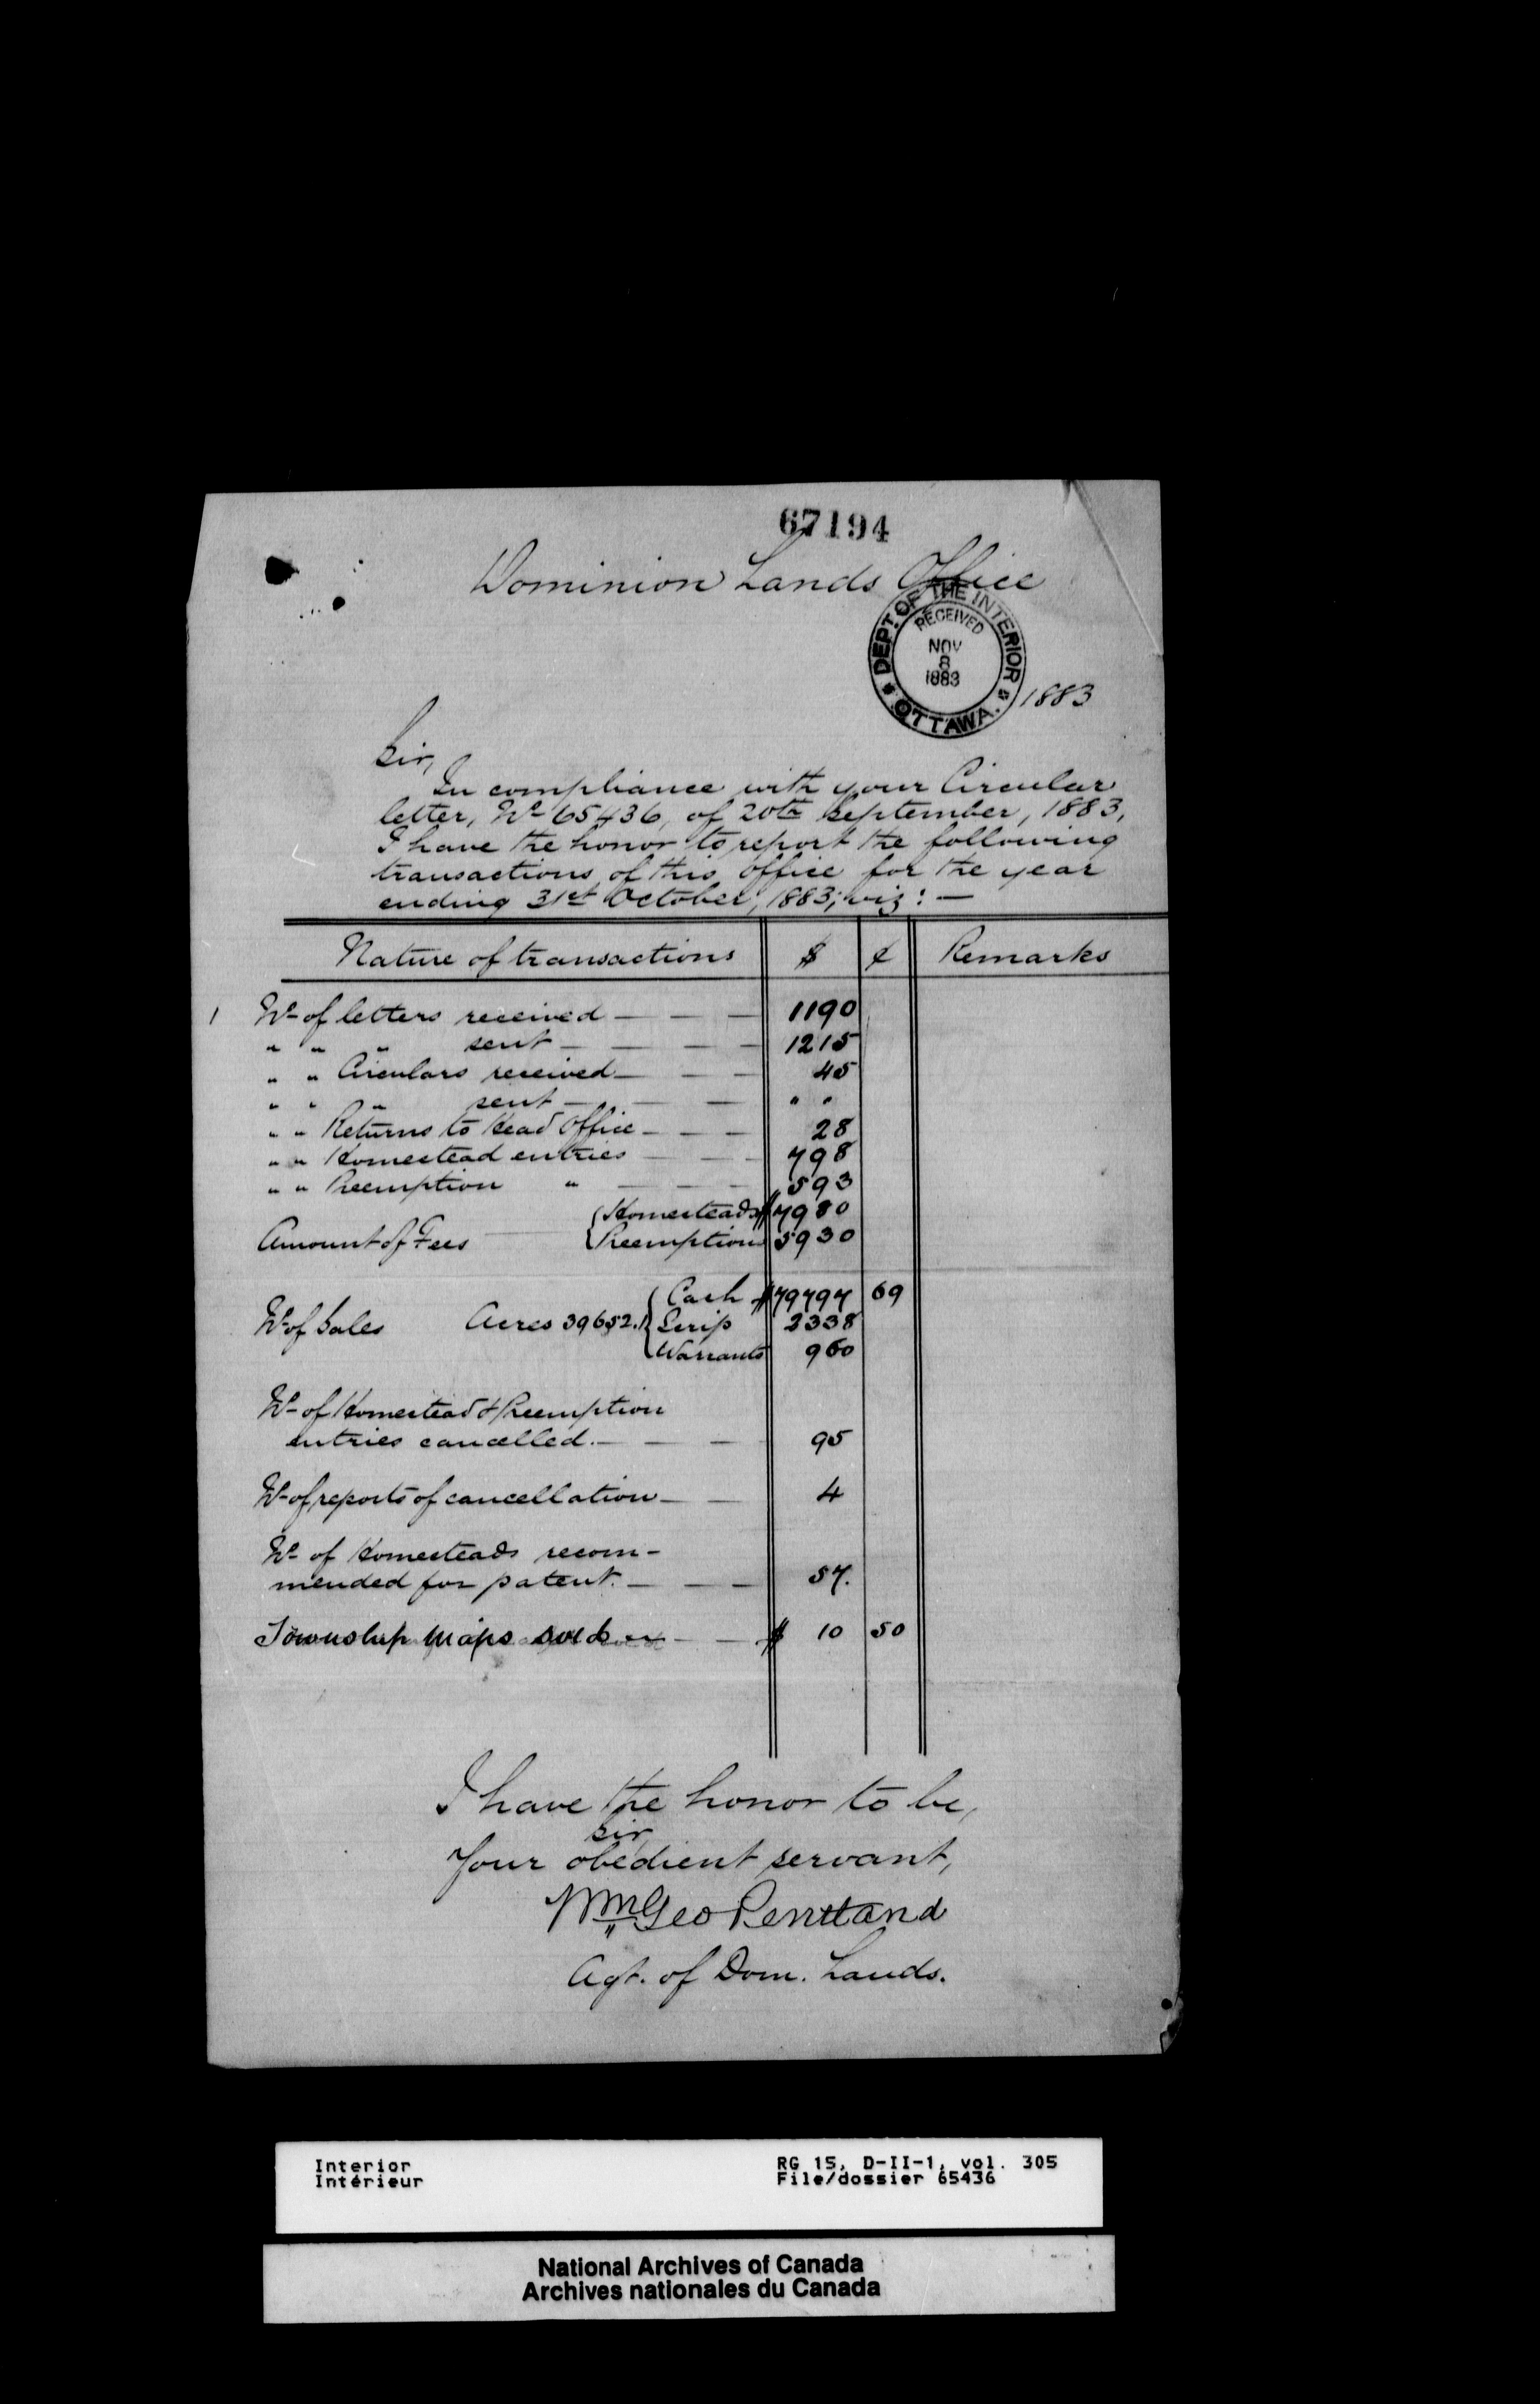 67194
Dominion Lands Office
DEPT. OF THE INTERIOR
RECEIVED
NOV
8
1883
OTTAWA.
1883
Sir,
In compliance with your Circular
letter, No 65436, of 20th September, 1883,
I have the honor to report the following
transactions of this office for the year
ending 31st October, 1883; viz: —
Nature of transactions $ ¢ Remarks
1 No of letters received — — — 1190
" " " sent — — — — 1215
" " Circulars received — — — 45
" " " sent — — — " "
" " Returns to Head Office — — — 28
" " Homestead entries — — — 798
" " Preemption " — — — 593
Homesteads $7980
Amount of Fees Preemptions 5930
Cash $79797 69
No of Sales Acres 39652. Scrip 2338
Warrants 960
No of Homestead & Preemption
entries cancelled. — — — 95
No of reports of cancellation — — 4
No of Homesteads recom-
mended for patent. — — — 57.
Township Maps sold — — $ 10 50
I have the honor to be,
Sir,
Your obedient servant,
Wm Geo Pentland
Agt. of Dom. Lands.
Interior RG 15, D-II-1, vol. 305
Intérieur File/dossier 65436
National Archives of Canada
Archives nationales du Canada